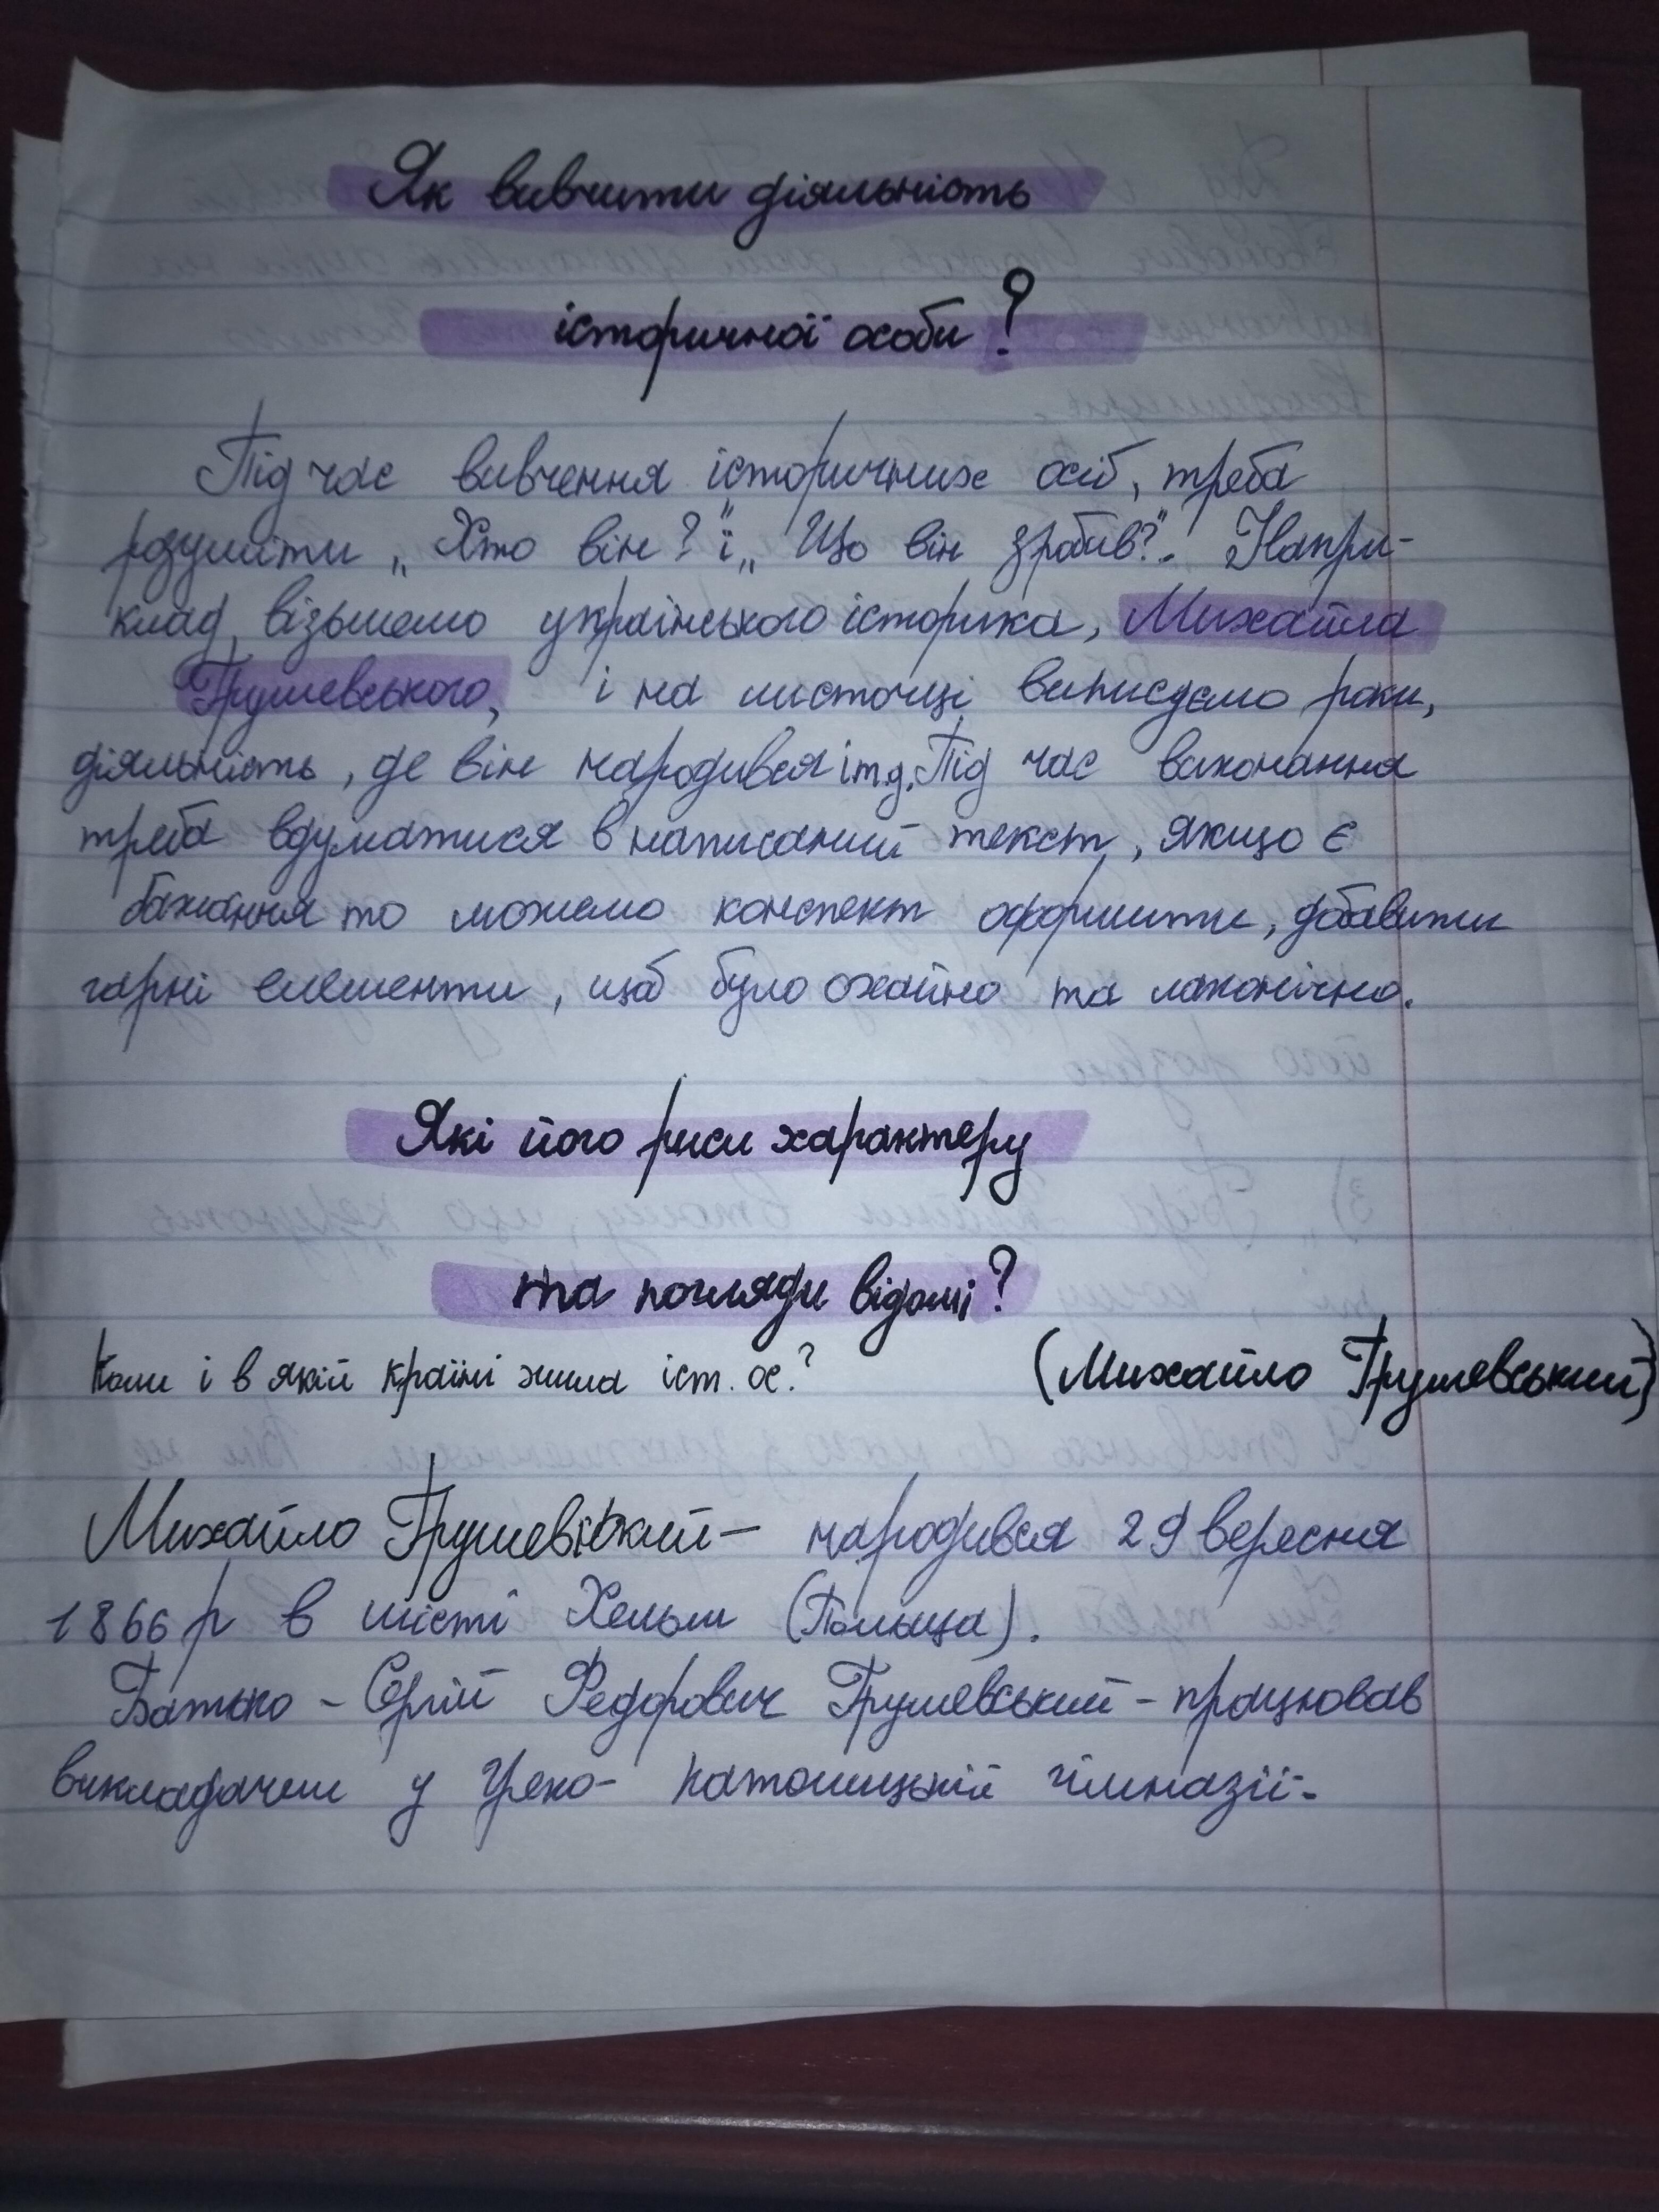 Як вивчити діяльність
історичної особи?
Під час вивчення історичних осіб, треба
розуміти „Хто він?" і „Що він зробив?". Напри-
клад, візьмемо українського історика, Михайла
Грушевського, і на листочці виписуємо роки,
діяльність, де він народився і т.д. Під час виконання
треба вдуматися в написаний текст, якщо є
бажання то можемо конспект оформити, добавити
гарні елементи, щоб було охайно та лаконічно.
Які його риси характеру
та погляди відомі?
Коли і в якій країні жила іст. ос.? (Михайло Грушевський)
Михайло Грушевський – народився 29 вересня
1866 р в місті Хельм (Польща).
Батько – Сергій Федорович Грушевський – працював
викладачем у Греко-католицькій гімназії.